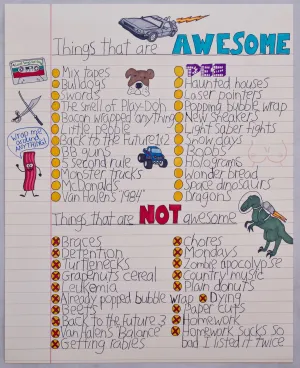 Things that are AWESOME
Mix tapes
Bulldogs
Swords
The smell of Play-Doh
Bacon wrapped anything
Little pebble
Back to the Future 1&2
BB guns
5 second rule
Monster trucks
McDonald's
Van Halen's "1984"
Haunted houses
Laser pointers
Popping bubble wrap
New Sneakers
Light Saber fights
Snow days
Holograms
Wonder bread
Space dinosaurs
Dragons
Wrap me
around
ANYTHING!
Things that are NOT awesome
Braces
Detention
Turtlenecks
Grapenuts cereal
Leukemia
Already popped bubble wrap
Beets
Back to the Future 3
Van Halen's Balance
Getting rabies
Chores
Mondays
Zombie apocolypse
Country music
Plain donuts
Dying
Paper cuts
Homework
Homework sucks so
bad I listed it twice